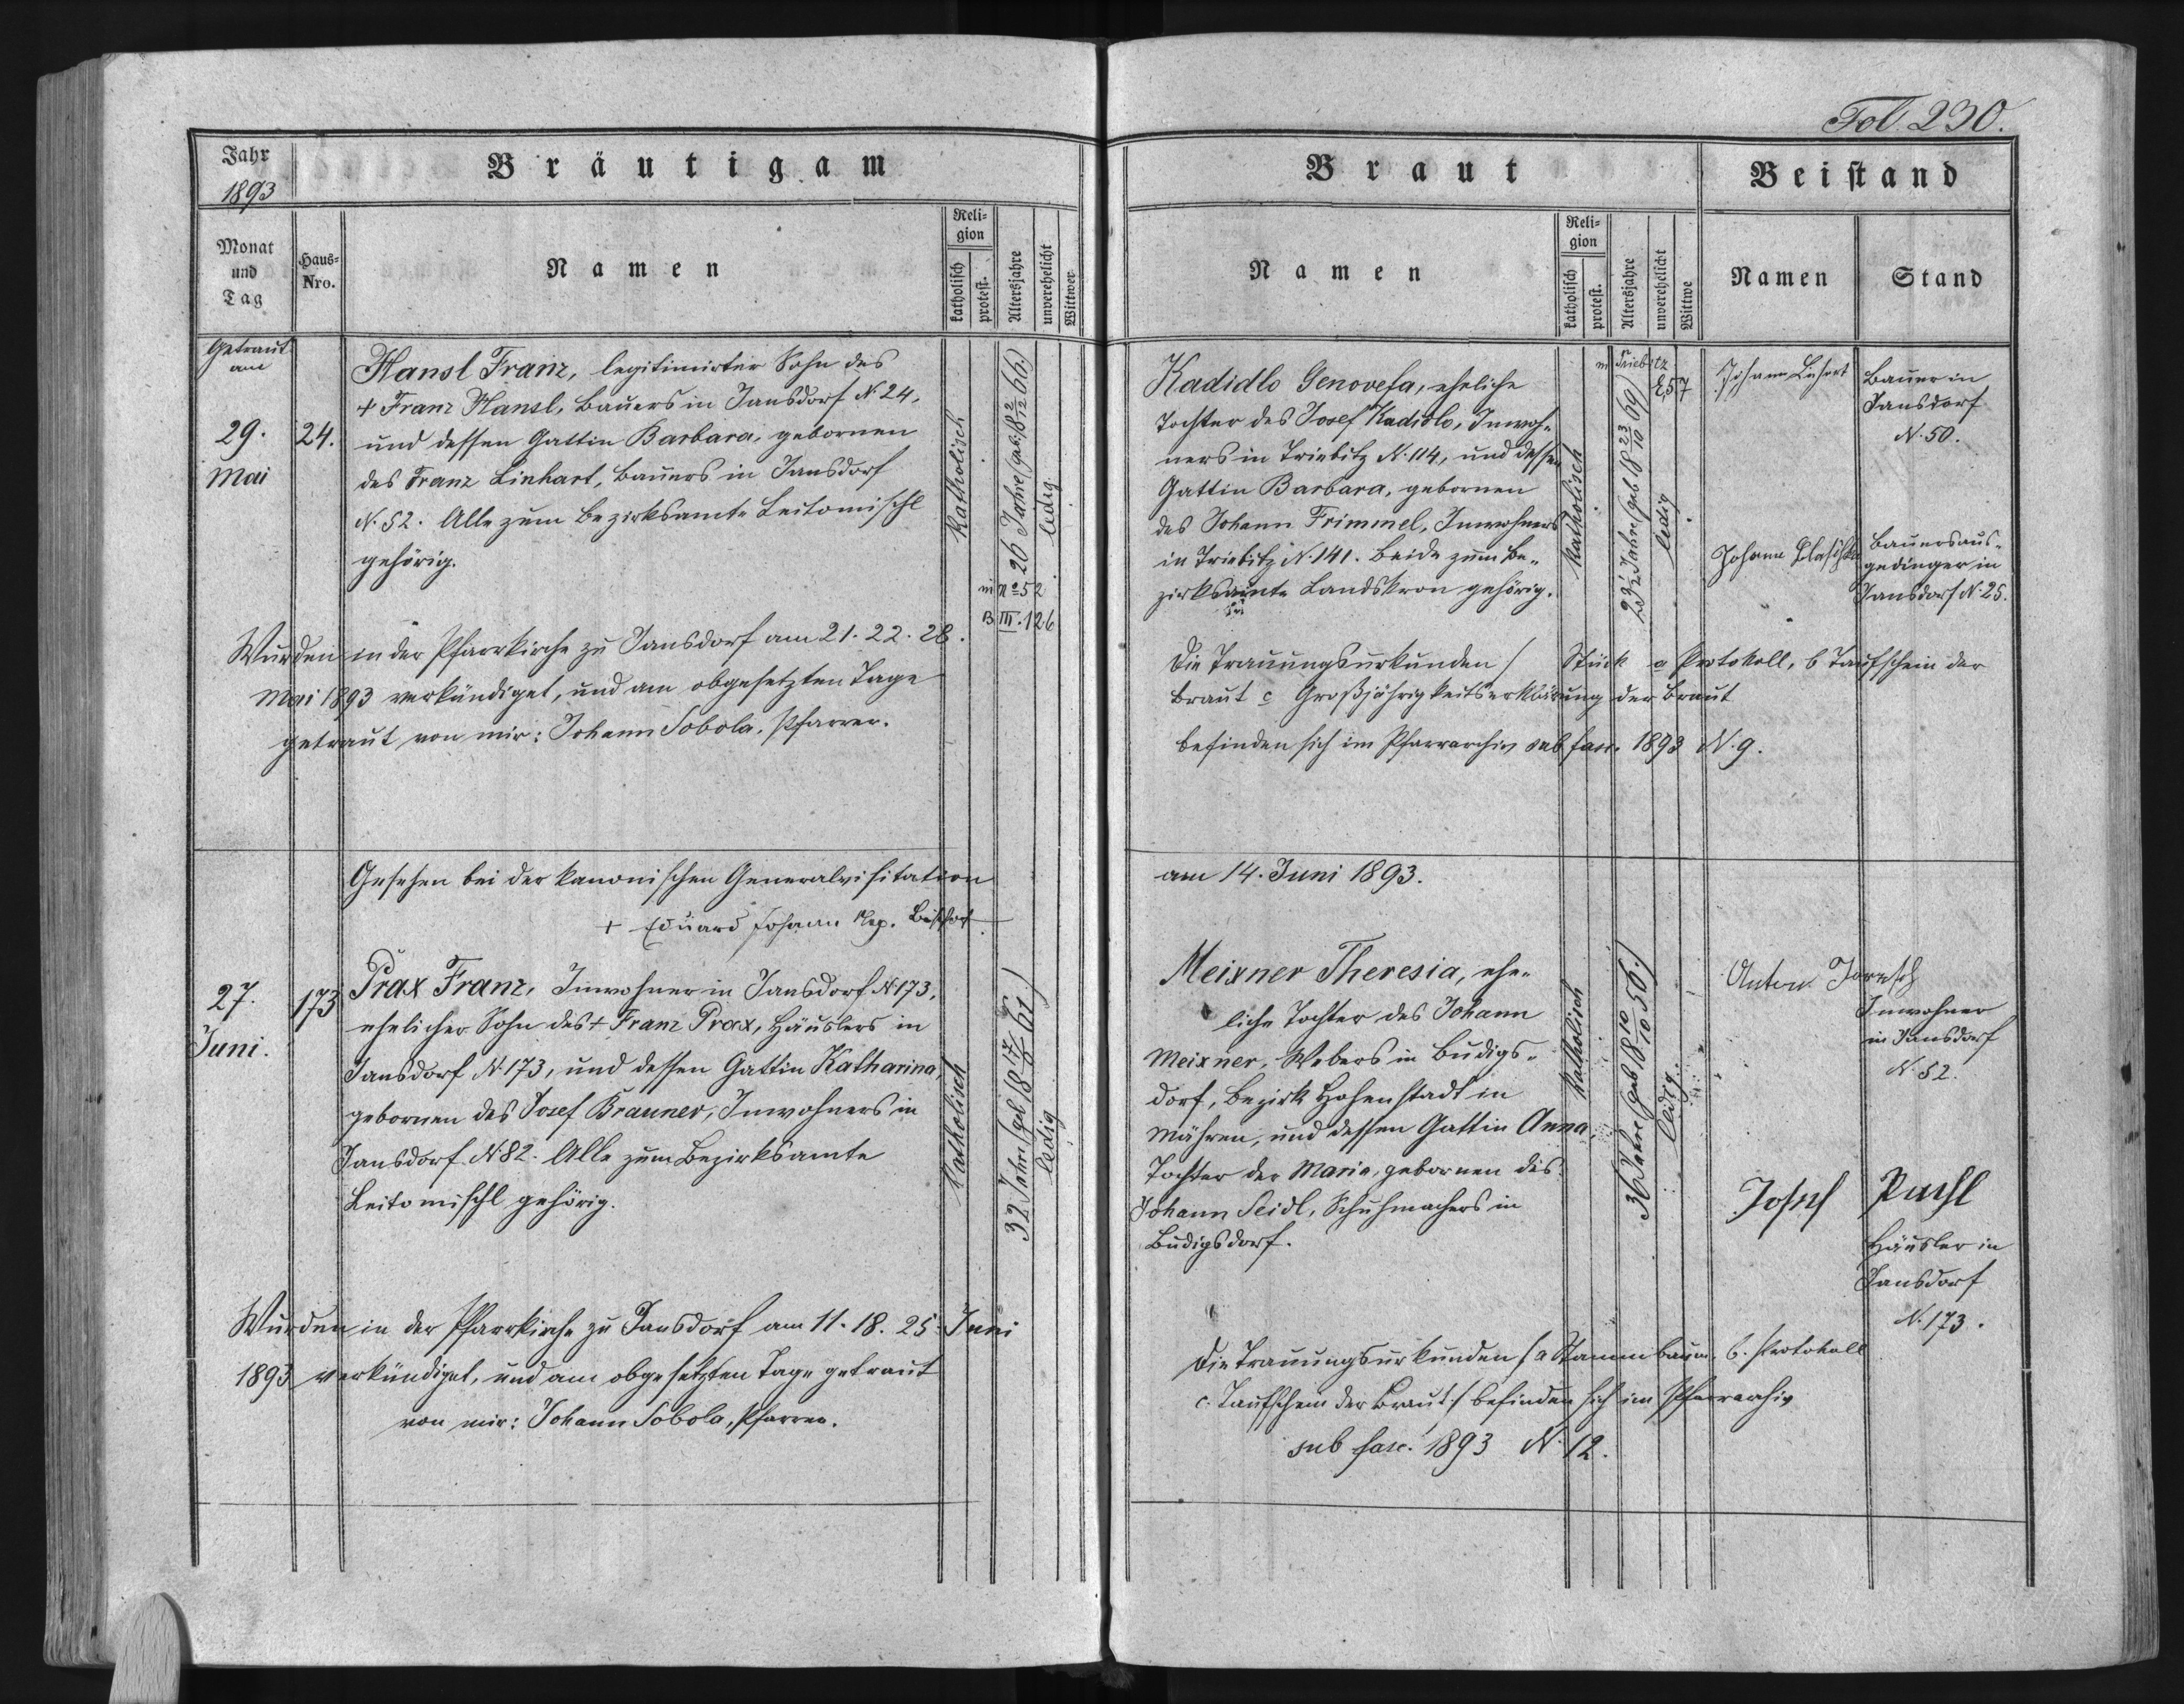 Fol 230.
Jahr
1893
Bräutigam
Monat
und
Tag
Haus-
Nro.
Namen
Reli-
gion
katholisch
protest.
Altersjahre
unverehelicht
Wittwer
Getraut
am
29.
Mai
24.
Hansl Franz, legitimirter Sohn des
+ Franz Hansl, Bauers in Jansdorf N. 24,
und dessen Gattin Barbara, gebornen
des Franz Linhart, Bauers in Jansdorf
N. 52. Alle zum Bezirksamte Leitomischl
gehörig.
Katholisch
26 Jahre (geb. 18 2/12 66.)
ledig.
in No 52
B III. 126
Wurden in der Pfarrkirche zu Jansdorf am 21. 22. 28.
Mai 1893 verkündiget, und am obgesetzten Tage
getraut von mir: Johann Sobola, Pfarrer.
Gesehen bei der kanonischen Generalvisitation
+ Eduard Johann Nep. Bischof
27.
Juni.
173
Prax Franz, Inwohner in Jansdorf N. 173,
ehelicher Sohn des + Franz Prax, Häuslers in
Jansdorf N. 173, und dessen Gattin Katharina,
gebornen des Josef Brauner, Inwohners in
Jansdorf N. 82. Alle zum Bezirksamte
Leitomischl gehörig.
Katholisch
32 Jahre (geb 18 17/9 61.)
ledig
Wurden in der Pfarrkirche zu Jansdorf am 11. 18. 25. Juni
1893 verkündiget, und am obgesetzten Tage getraut
von mir: Johann Sobola, Pfarrer.
Braut
Beistand
Namen
Reli-
gion
katholisch
protest.
Altersjahre
unverehelicht
Wittwe
Namen
Stand
Kadidlo Genovefa, eheliche
Tochter des Josef Kadidlo, Inwoh-
ners in Triebitz N. 114, und dessen
Gattin Barbara, gebornen
des Johann Frimmel, Inwohners
in Triebitz N. 141. Beide zum Be-
zirksamte Landskron gehörig.
Katholisch
23 1/2 Jahre (geb 18 23/10 69)
ledig
in Triebitz
E, 57
Johann
Bauer in
Jansdorf
N. 50.
Johann
Bauersaus-
gedinger in
Jansdorf N. 25.
Die Trauungsurkunden / Stück a Protokoll, b Taufschein der
Braut c Großjährigkeitserklärung der Braut
befinden sich im Pfarrarchiv sub fasc. 1893 N. 9.
am 14. Juni 1893.
Meixner Theresia, ehe-
liche Tochter des Johann
Meixner, Webers in Budigs-
dorf, Bezirk Hohenstadt in
Mähren, und dessen Gattin Anna,
Tochter der Maria, gebornen des
Johann Seidl, Schuhmachers in
Budigsdorf.
Katholisch
36 Jahre (geb 18 10/10 56.)
ledig.
Anton
Inwohner
in Jansdorf
N. 52.
Josef
Häusler in
Jansdorf
N. 173.
Die Trauungsurkunden / a Stammbaum. b. Protokoll
c. Taufschein der Braut / befinden sich im Pfarrarchiv
sub fasc. 1893 N. 12.